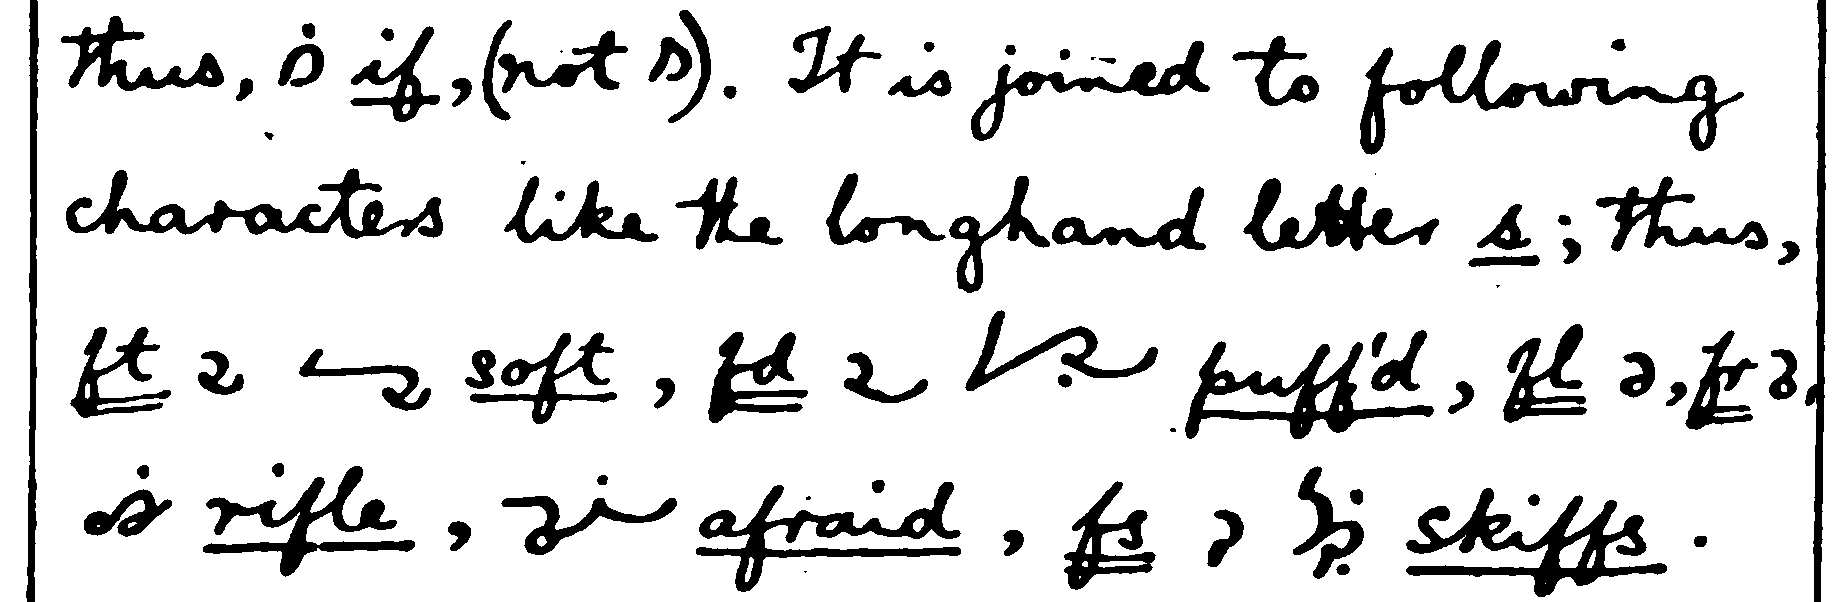 thus, if, (not ). It is joined to following
characters like the longhand letter s; thus,
ft soft, fd puff'd, fl , fr ,
rifle, afraid, fs skiffs.